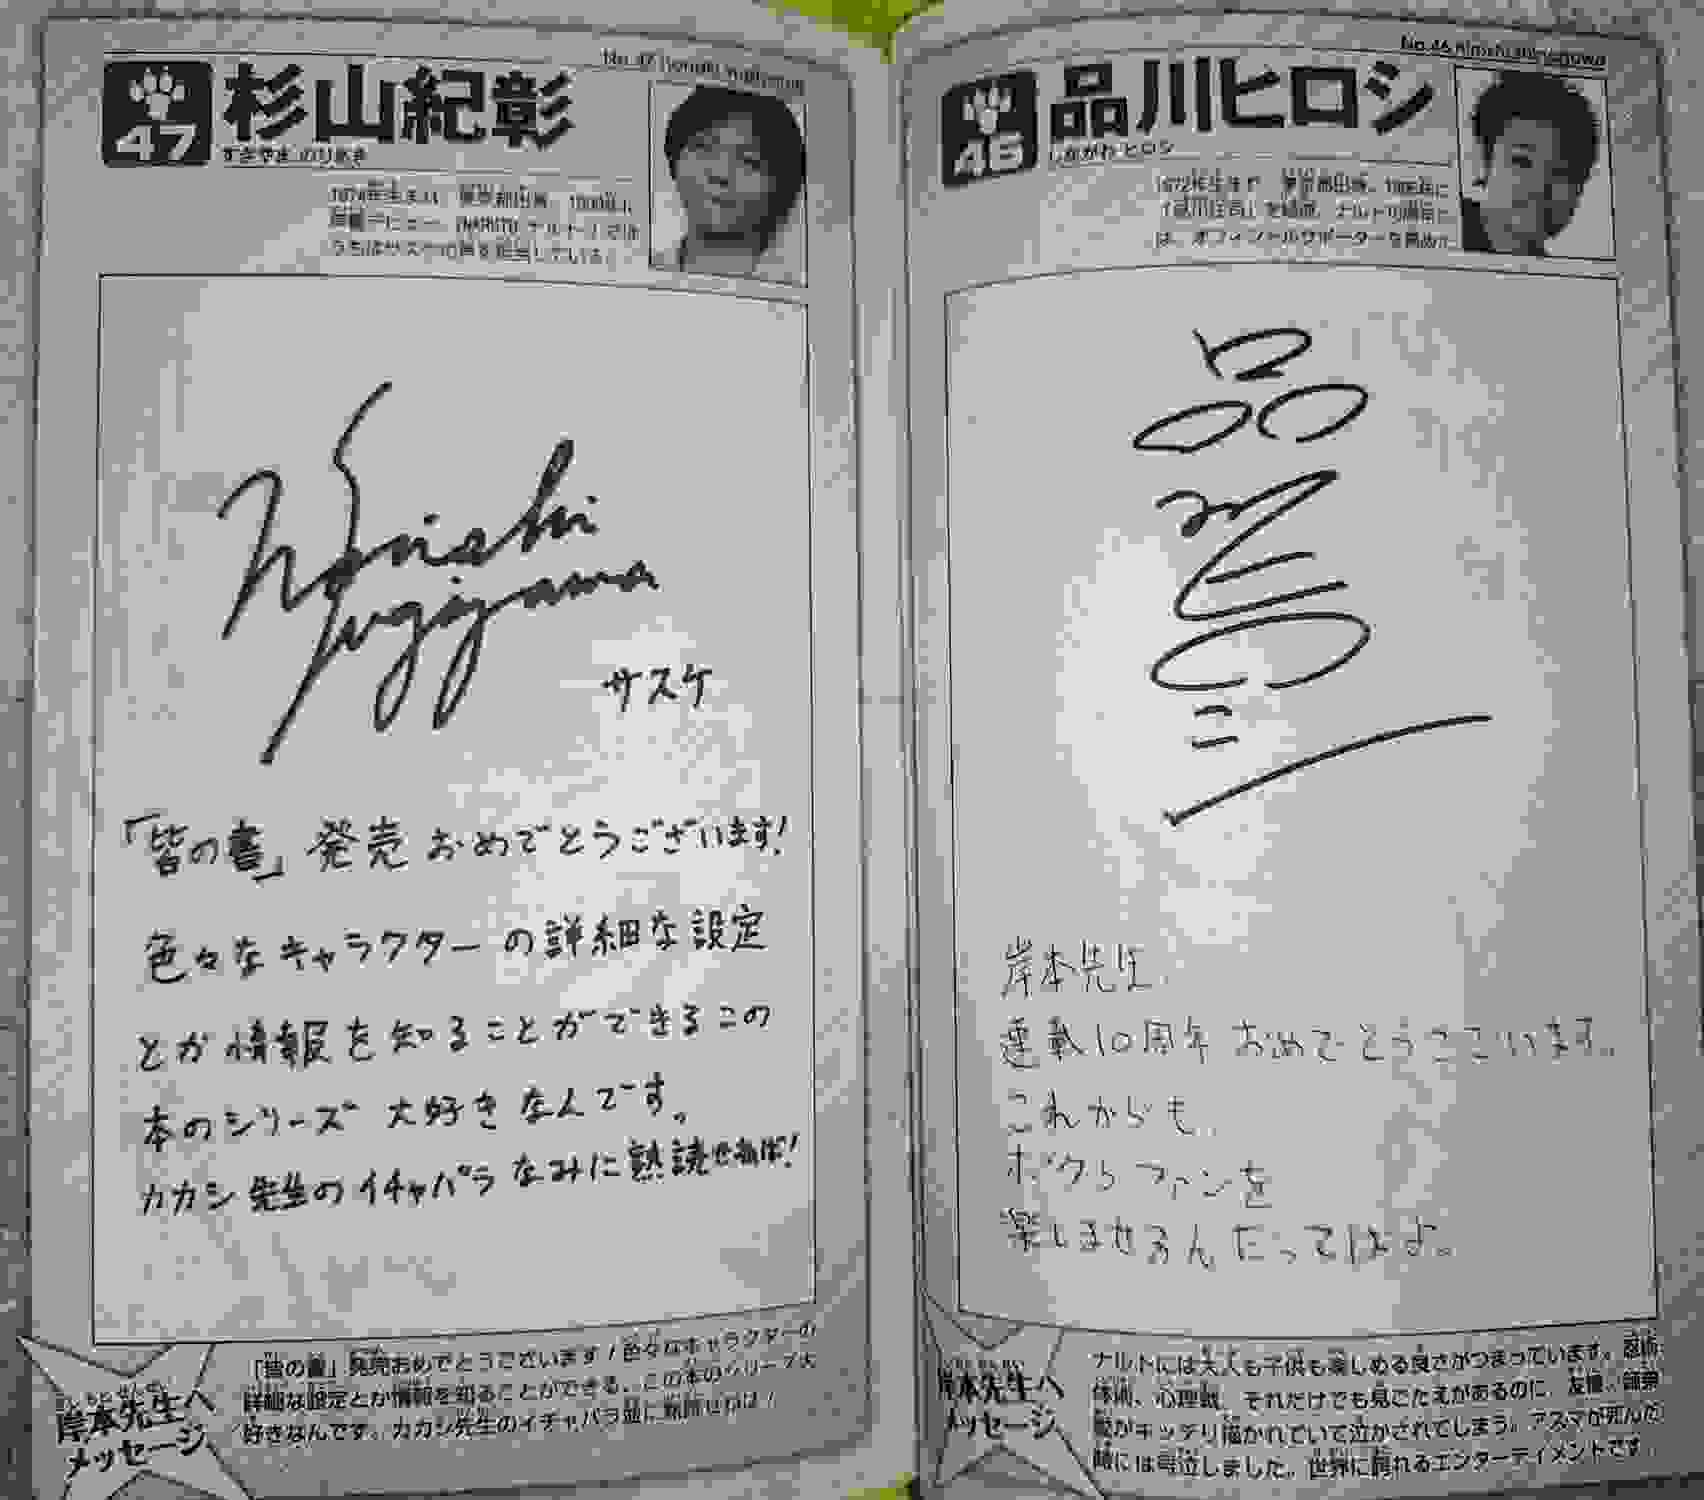 No.46 Hiroshi Shinagawa
46
品川ヒロシ
しながわ ヒロシ
1972年生まれ 東京都出身。1995年に
「品川庄司」を結成。
は、オフィシャルサポーターを務めた
品川
岸本先生
連載10周年 おめでとうございます。
これからも、
ボクらファンを
楽しませるんだってばよ。
岸本先生へ
メッセージ
ナルトには大人も子供も楽しめる良さがつまっています。忍術、
体術、心理戦、それだけでも見ごたえがあるのに、友情、師弟
愛がキッチリ描かれていて泣かされてしまう。アスマが死んだ
時には号泣しました。世界に誇れるエンターテイメントです。
No.47 Noriaki Sugiyama
47
杉山紀彰
すぎやま のりあき
1974年生まれ 東京都出身。
声優デビュー。『NARUTO-ナルト-』では
うちはサスケの声を担当している。
Noriaki
Sugiyama
サスケ
「皆の書」発売おめでとうございます!
色々なキャラクターの詳細な設定
とか情報を知ることができるこの
本のシリーズ大好きなんです。
カカシ先生のイチャパラなみに熟読せねば!
岸本先生へ
メッセージ
「皆の書」発売おめでとうございます!色々なキャラクターの
詳細な設定とか情報を知ることができる、この本のシリーズ大
好きなんです。カカシ先生のイチャパラ並に熟読せねば!